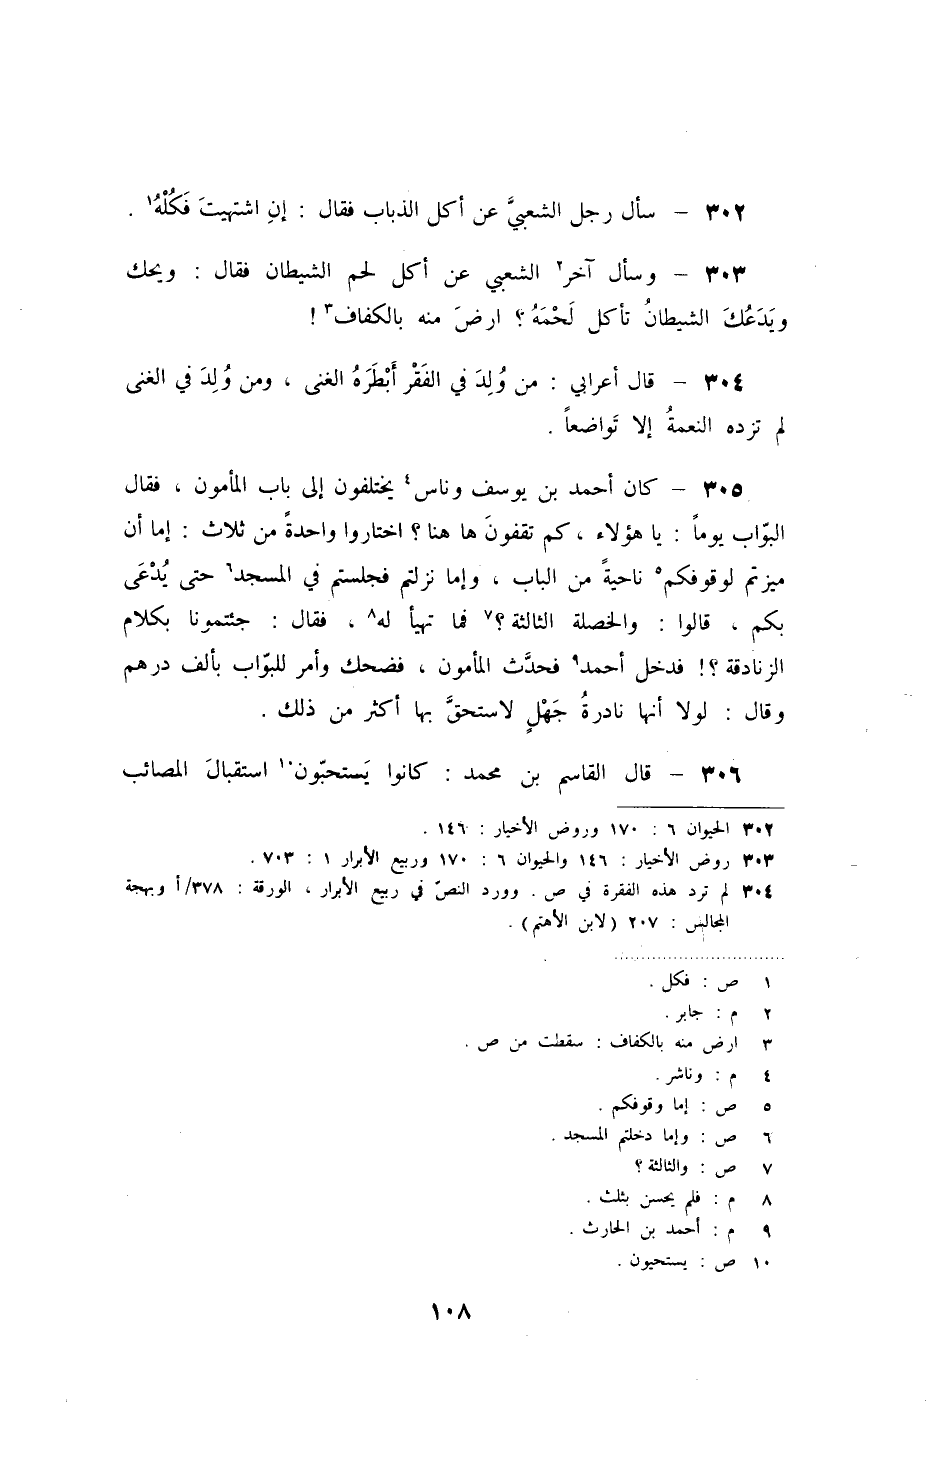 ٣٠٢ – سأل رجل الشعبيَّ عن أكل الذباب فقال : إنِ اشتهيتَ فَكُلْهُ١ .
٣٠٣ – وسأل آخر٢ الشعبي عن أكل لحم الشيطان فقال : ويحك
ويَدَعُكَ الشيطانُ تأكل لَحْمَهُ ؟ ارضَ منه بالكفاف٣ !
٣٠٤ – قال أعرابي : من وُلِدَ في الفَقْر أَبْطَرَهُ الغنى ، ومن وُلِدَ في الغنى
لم تزده النعمةُ إلا تَواضعاً .
٣٠٥ – كان أحمد بن يوسف وناس٤ يختلفون إلى باب المأمون ، فقال
البوّاب يوماً : يا هؤلاء ، كم تقفونَ ها هنا ؟ اختاروا واحدةً من ثلاث : إما أن
ميزتم لوقوفكم٥ ناحيةً من الباب ، وإما نزلتم فجلستم في المسجد٦ حتى يُدْعَى
بكم ، قالوا : والخصلة الثالثة ؟٧ فما تهيأ له٨ ، فقال : جئتمونا بكلام
الزنادقة ؟! فدخل أحمد٩ فحدَّث المأمون ، فضحك وأمر للبوّاب بألف درهم
وقال : لولا أنها نادرةُ جَهْلٍ لاستحقَّ بها أكثر من ذلك .
٣٠٦ – قال القاسم بن محمد : كانوا يَستحبّون١٠ استقبالَ المصائب
٣٠٢ الحيوان ٦ : ١٧٠ وروض الأخيار : ١٤٦ .
٣٠٣ روض الأخيار : ١٤٦ والحيوان ٦ : ١٧٠ وربيع الأبرار ١ : ٧٠٣ .
٣٠٤ لم ترد هذه الفقرة في ص . وورد النصّ في ربيع الأبرار ، الورقة : ٣٧٨/أ وبهجة
المجالس : ٢٠٧ (لابن الأهتم) .
١ ص : فكل .
٢ م : جابر .
٣ ارض منه بالكفاف : سقطت من ص .
٤ م : وناشر .
٥ ص : إما وقوفكم .
٦ ص : وإما دخلتم المسجد .
٧ ص : والثالثة ؟
٨ م : فلم يحسن بثلث .
٩ م : أحمد بن الحارث .
١٠ ص : يستحيون .
١٠٨